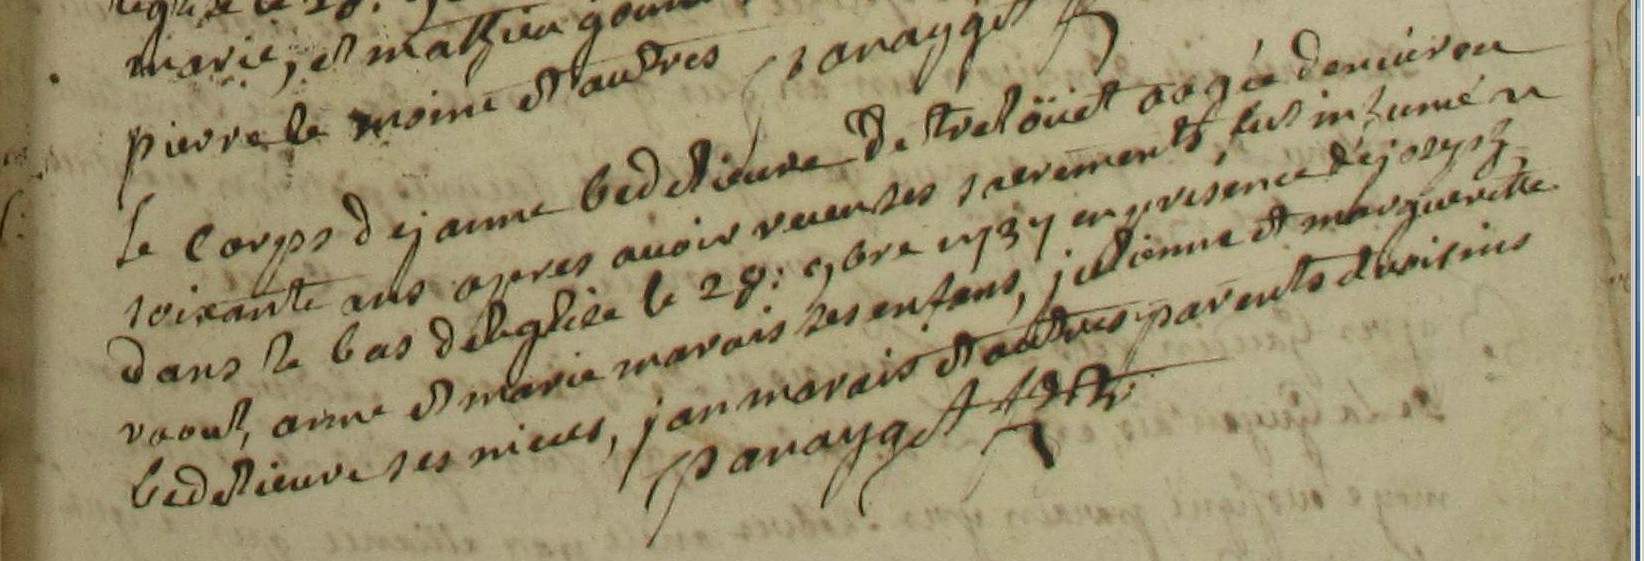 marie, et mathieu
pierre le moine et autres parayget
Le corps de janne bedetieuvre de aagée denviron
soixante ans apres avoir receu ses sacrements, fut inhumé
dans le bas de leglise le 28: 9bre 1737 en presence de joseph
raoul, anne et marie marais ses enfans, julienne et marguerite
bedetieuvre ses nieces, jan marais et autres parents et voisins
parayget